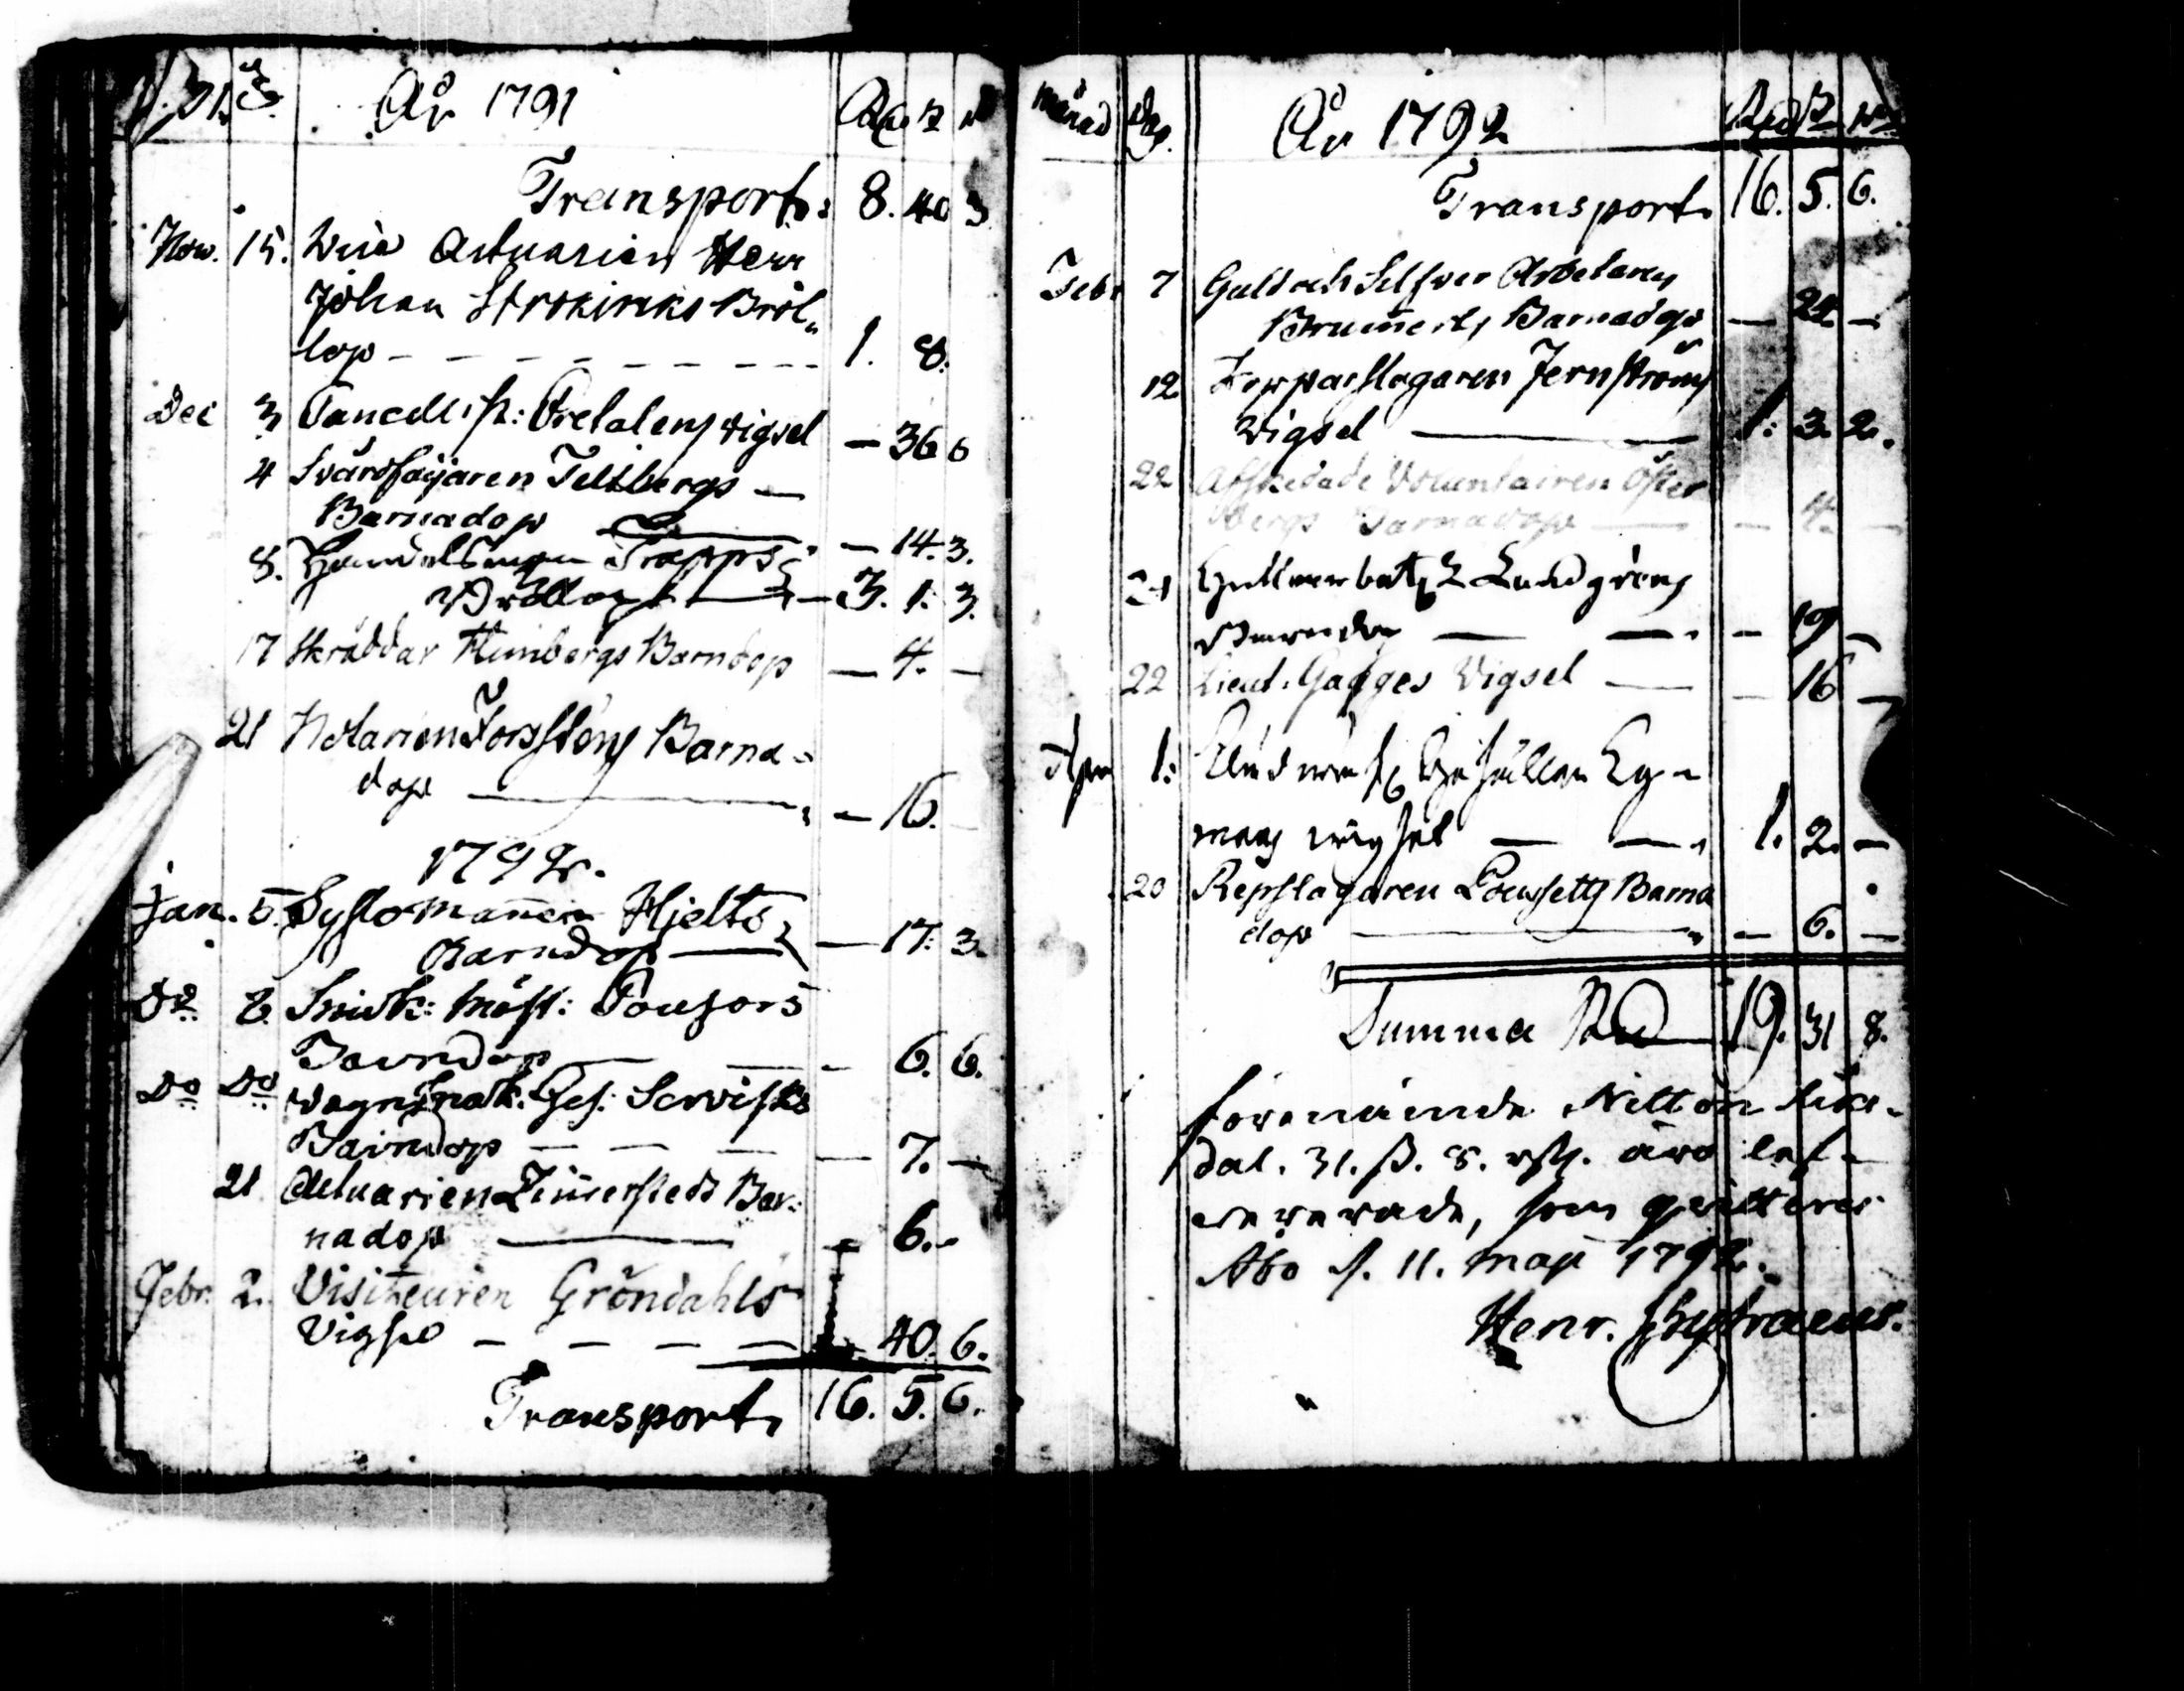 År 1791
Transport: 8. 40 3
Nov. 15. Wid Actuarien Herr
Johan Strokirks Bröl„
lop - - - - - - 1. 8.
Dec 3 Cancellist: Pretalens vigsel — 36 6
4 Svärdfäijaren Tellbergs —
Barnadop — 14. 3.
8. Handelsman Trapps
Bröllop — 3. 1. 3.
17 Skräddar Flinbergs Barndop — 4. —
21 Notarien Forsstens Barna-
dop — — 16.
1792.
Jan. 5. Sysslomannen Hjelts
Barndop — — 17. 3.
Do 8. Snick: Mäst:
Barndop — — 6. 6.
Do Do Vagnsmak. Ges:
Barndop — — — 7. —
21 Actuarien Zimerstedts Bar:
nadop — — 6. -
Febr. 2. Visiteuren Gröndahls
Vigsel — — — 40. 6.
Transport, 16. 5. 6.
Månad Dag. År 1792 Rd ß
Transport, 16. 5. 6.
Febr 7 Guld och Silfver Arbetaren
Brumerts Barnadop — 24 —
12 Kopparslagaren Jernströms
Vigsel — 1: 3. 2.
22 Afskedade Volontairen Öster
bergs Barnadop — — 4. —
21 Lundgrens
— — — 19 —
22 Lieut. Gadges Vigsel — — 16 —
Apr 1: Gesällen Ly-
mans wigsel — — 1. 2. —
20 Repslagaren Barna
dop — — 6. —
Summa Rd 19. 31 8.
förenämnde Nitton Riks-
dal. 31. ß. 8. rst. äro lef-
vererade, som qvitteras
Åbo d. 11. Maji 1792.
Henr.